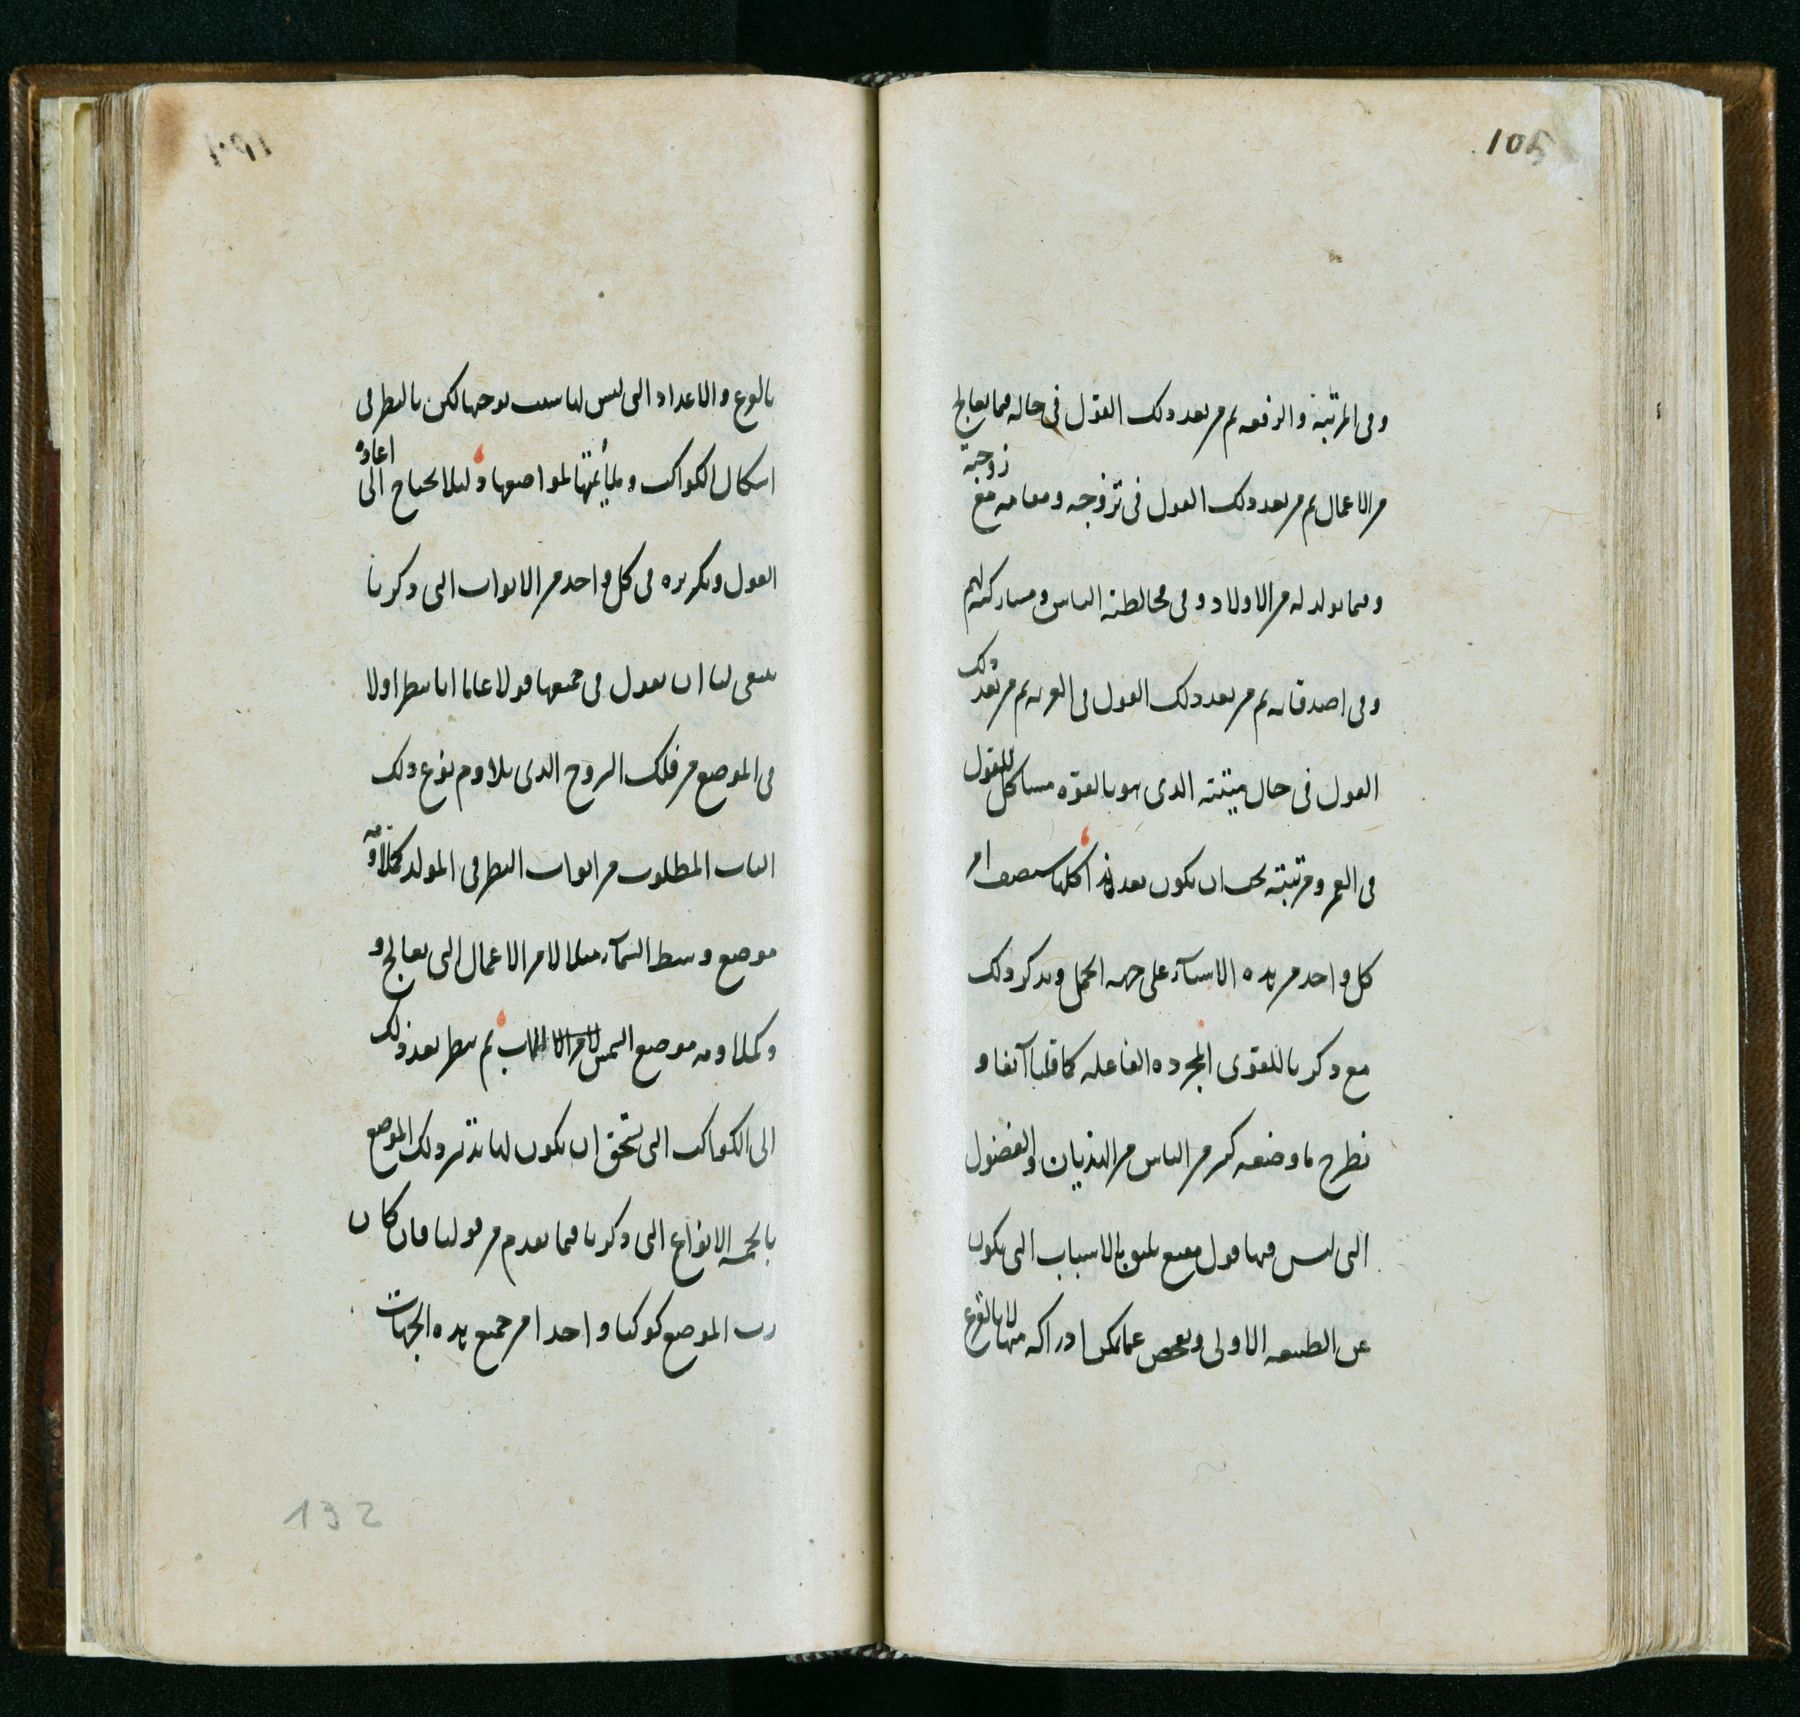 105
وفى المرتبة والرفعه ثم من بعد ذلك القول فى حاله فيما يعالج
من الاعمال ثم من بعد ذلك القول فى تزوجه ومقامه مع زوجته
وفيما يولد له من الاولاد وفى مخالطته الناس ومشاركته لهم
وفى اصدقائه ثم من بعد ذلك القول فى الغربه ثم من بعد ذلك
القول فى حال ميتته الذى هو بالقوّه مشاكل للقول
فى العمر ومرتبته يجب ان يكون بعد هذا كلها سنصف امر
كل واحد من هذه الاشيآء على جهه الجمل ونذكر ذلك
مع ذكرنا للقوى المجرده الفاعله كما قلنا آنفا و
نطرح ما وضعه كثير من الناس من الهذيان والفضول
التى ليس فيها قول مقنع يليق بالاسباب التى تكون
عن الطبيعه الاولى ونفحص عما يمكن ادراكه منها لا بالقرع
بالقرع والاعداد التى ليس لها سبب يوجبها لكن بالنظر فى
اشكال الكواكب وملأيمتها لمواضعها ولئلا نحتاج الى اعاده
القول وتكريره فى كل واحد من الابواب التى ذكرنا
ينبغى لنا ان نقول فى جميعها قولا عاما انا ننظر اولا
فى الموضع من فلك البروج الذى يلاوم نوع ذلك
الباب المطلوب من ابواب النظر فى المولد كملاومه
موضع وسط السمآء مثلا لامر الاعمال التى تعالج و
وكملاومه موضع الشمس لامر الابا ثم ننظر بعد ذلك
الى الكواكب التى تستحق ان يكون لها تدبير ذلك الموضع
بالخمسه الانواع التى ذكرنا فيما تقدم من قولنا فان كان
رب الموضع كوكبا واحدا من جميع هذه الجهات
132